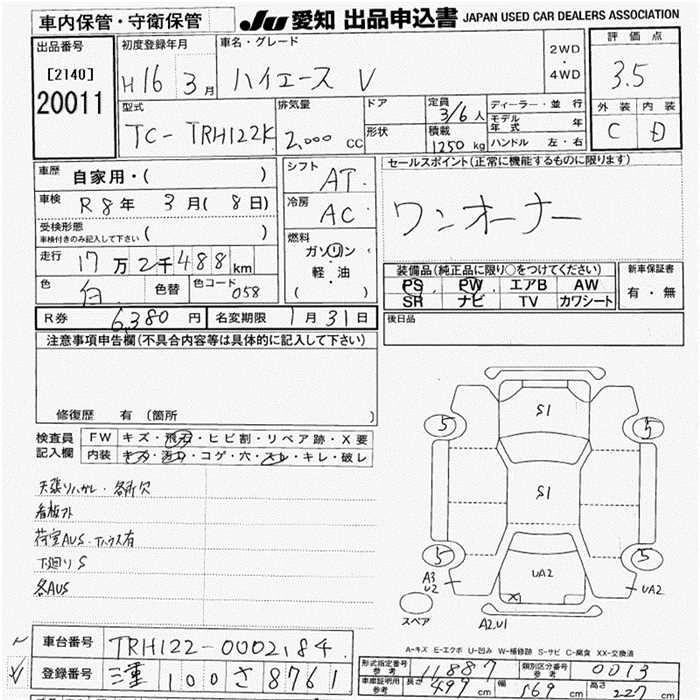 車内保管・守衛保管
JU 愛知 出品申込書 JAPAN USED CAR DEALERS ASSOCIATION
出品番号
[2140]
20011
初度登録年月
H16 3月
車名・グレード
ハイエース V
2WD
・
4WD
評価点
3.5
外装 内装
C D
型式
TC-TRH122K
排気量
2,000 CC
ドア
形状
定員 3/6人
積載 1250kg
ディーラー・並行
モデル年式 年
ハンドル 左・右
車歴 自家用・( )
車検 R8年 3月(8日)
受検形態
車検付きのみ記入して下さい ( )
走行 17万2千488km
色 白 色替 色コード 058
シフト AT
冷房 AC
燃料
ガソリン
軽・油
( )
セールスポイント(正常に機能するものに限ります)
ワンオーナー
装備品(純正品に限り○をつけてください)
PS PW エアB AW
SR ナビ TV カワシート
新車保証書
有・無
R券 6,380円 名変期限 1月31日
後日品
注意事項申告欄(不具合内容等は具体的に記入して下さい)
修復歴 有 (箇所 )
検査員
記入欄
FW キズ・飛石・ヒビ割・リペア跡・X要
内装 キズ・汚れ・コゲ・穴・スレ・キレ・破レ
天張りハガレ・各所欠
看板アト
荷室AUS・Tハウス有
下廻りS
各AUS
S1
S1
UA2
5
5
5
5
A3
U2
UA2
X
A2.U1
スペア
A-キズ E-エクボ U-凹み W-補修跡 S-サビ C-腐食 XX-交換済
車台番号 TRH122-0002184
登録番号 三重 100 さ 8761
形式指定番号 参考 11887
類別区分番号 参考 0013
車庫証明用 参考 長さ 499cm 幅 169cm 高さ 227cm